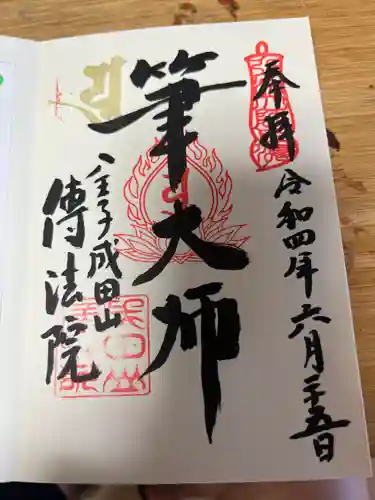 奉拝
令和四年六月二十五日
筆大師
八王子成田山
傳法院